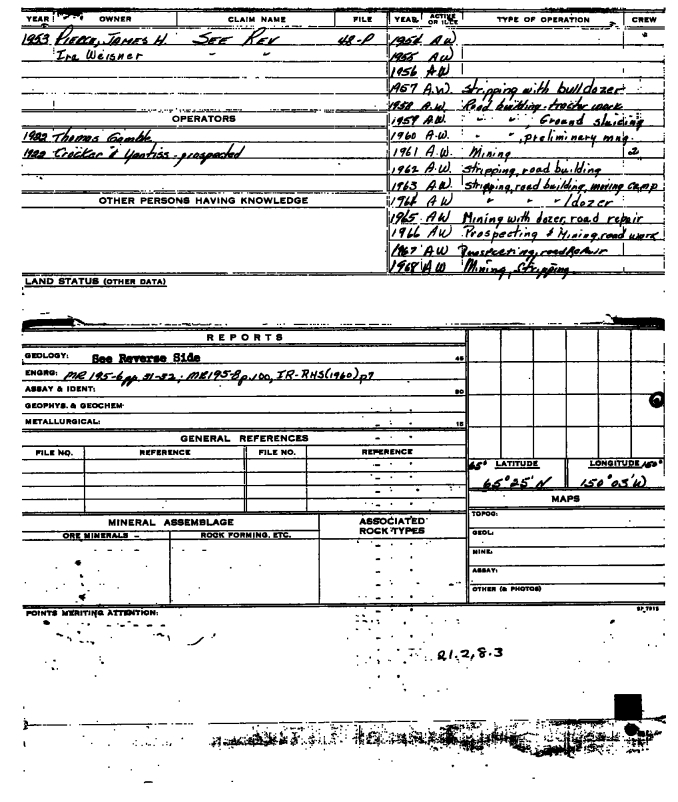 YEAR OWNER CLAIM NAME FILE
1953 PIERCE, JAMES H. SEE REV 48-P
Ira Weisner " "
OPERATORS
1922 Thomas Gamble
1922 Crocker & Yantiss - prospected
OTHER PERSONS HAVING KNOWLEDGE
YEAR ACTIVE OR IDLE TYPE OF OPERATION CREW
1954 A W
1955 A W
1956 A W
1957 A.W. Stripping with bulldozer
1958 A.W. Road building - tractor work
1959 A W " " , Ground sluicing
1960 A.W. " " , preliminary mng.
1961 A.W. Mining 2
1962 A.W. stripping, road building
1963 A.W. stripping, road building, moving camp
1964 A W " " " /dozer
1965 A W Mining with dozer, road repair
1966 A W Prospecting & Mining, road work
1967 A W Prospecting, road Repair
1968 A W Mining, Stripping
LAND STATUS (OTHER DATA)
REPORTS
GEOLOGY: See Reverse Side 45
ENGRG: MR 195-6 pp. 31-32; MR195-8 p.100, IR-RHS(1960) p7
ASSAY & IDENT: 30
GEOPHYS. & GEOCHEM.
METALLURGICAL: 15
GENERAL REFERENCES
FILE NO. REFERENCE FILE NO. REFERENCE
65° LATITUDE LONGITUDE 150°
65°25' N 150°03' W
MAPS
TOPOG:
GEOL:
MINE:
ASSAY:
OTHER (& PHOTOS)
MINERAL ASSEMBLAGE
ORE MINERALS ROCK FORMING, ETC.
ASSOCIATED ROCK TYPES
POINTS MERITING ATTENTION:
21.2, 8.3